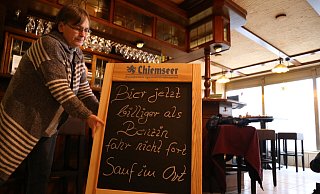 Chiemseer
Bier jetzt
billiger als
Benzin
fahr nicht fort
Sauf im Ort